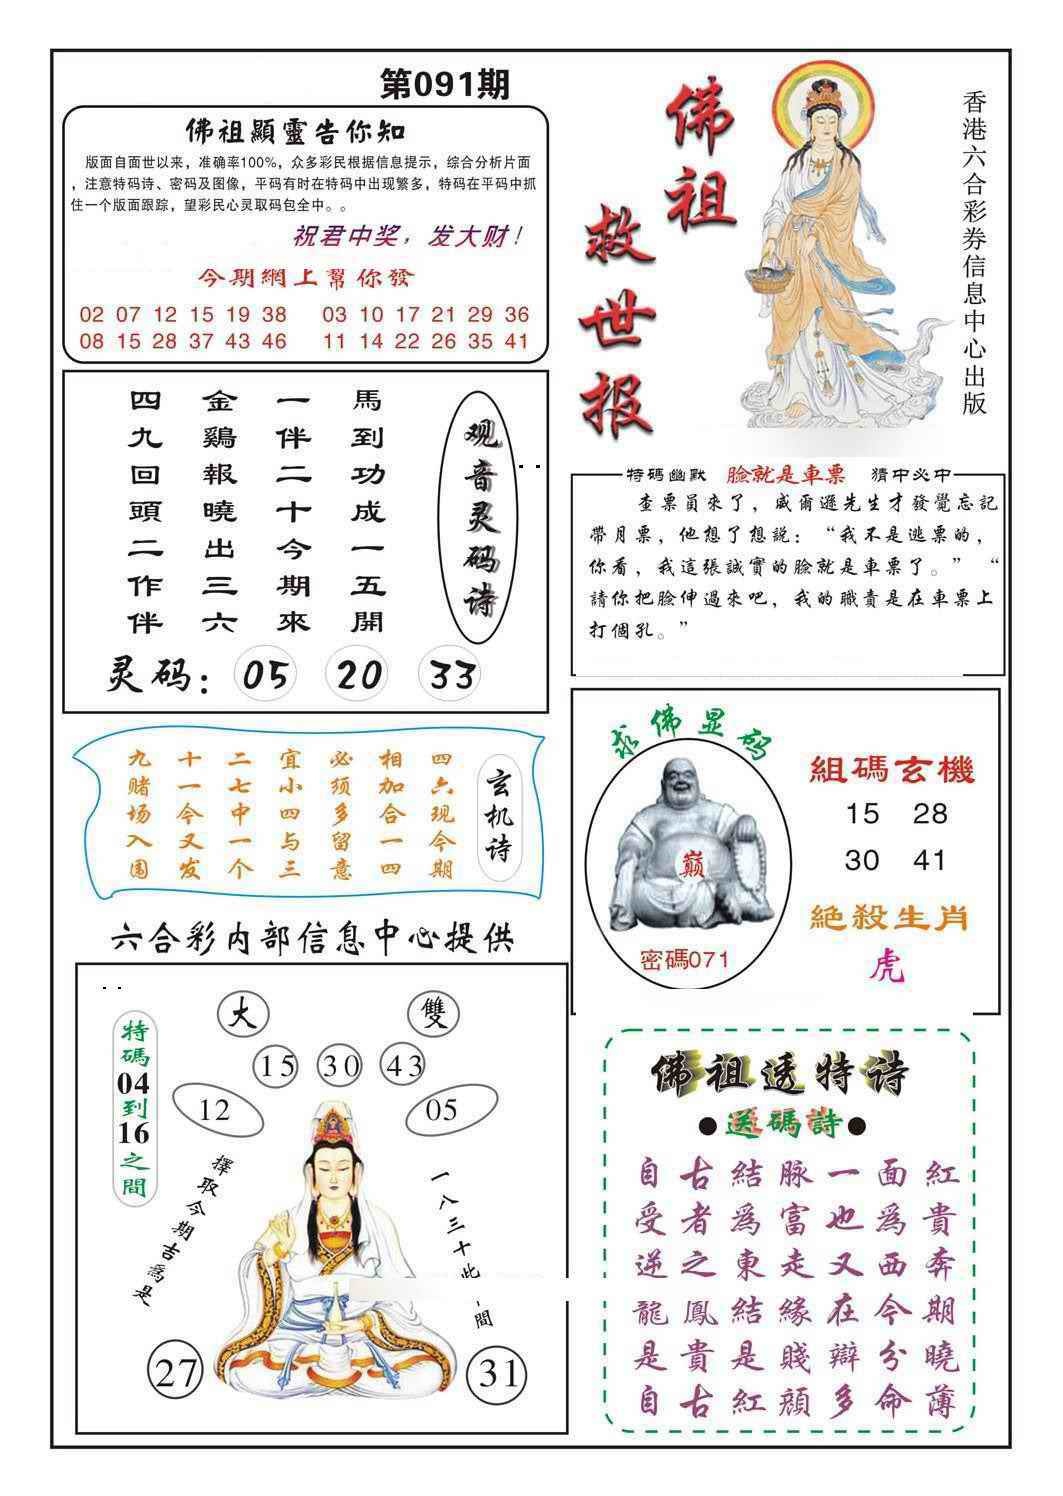 第091期
佛祖顯靈告你知
版面自面世以来，准确率100%，众多彩民根据信息提示，综合分析片面
，注意特码诗、密码及图像，平码有时在特码中出现繁多，特码在平码中抓
住一个版面跟踪，望彩民心灵取码包全中。。
祝君中奖，发大财！
今期網上幫你發
02 07 12 15 19 38 03 10 17 21 29 36
08 15 28 37 43 46 11 14 22 26 35 41
佛祖
救世报
香港六合彩券信息中心出版
观音灵码诗
馬到功成一五開
一伴二十今期來
金鷄報曉出三六
四九回頭二作伴
灵码：05 20 33
特碼幽默 臉就是車票 猜中必中
查票員來了，威爾遜先生才發覺忘記
帶月票，他想了想説：“我不是逃票的，
你看，我這張誠實的臉就是車票了。” “
請你把臉伸過來吧，我的職責是在車票上
打個孔。”
玄机诗
四六现今期
相加合一四
必须多留意
宜小四与三
二七中一个
十一今又发
九赌场入围
求佛显码
巅
密碼071
組碼玄機
15 28
30 41
絶殺生肖
虎
六合彩内部信息中心提供
特碼04到16之間
大 雙
15 30 43
12 05
擇取今期吉爲是
一八三十此間
27 31
佛祖透特诗
●送碼詩●
自古結脉一面紅
受者為富也為貴
逆之東走又西奔
龍鳳結緣在今期
是貴是賤辯分曉
自古紅顔多命薄